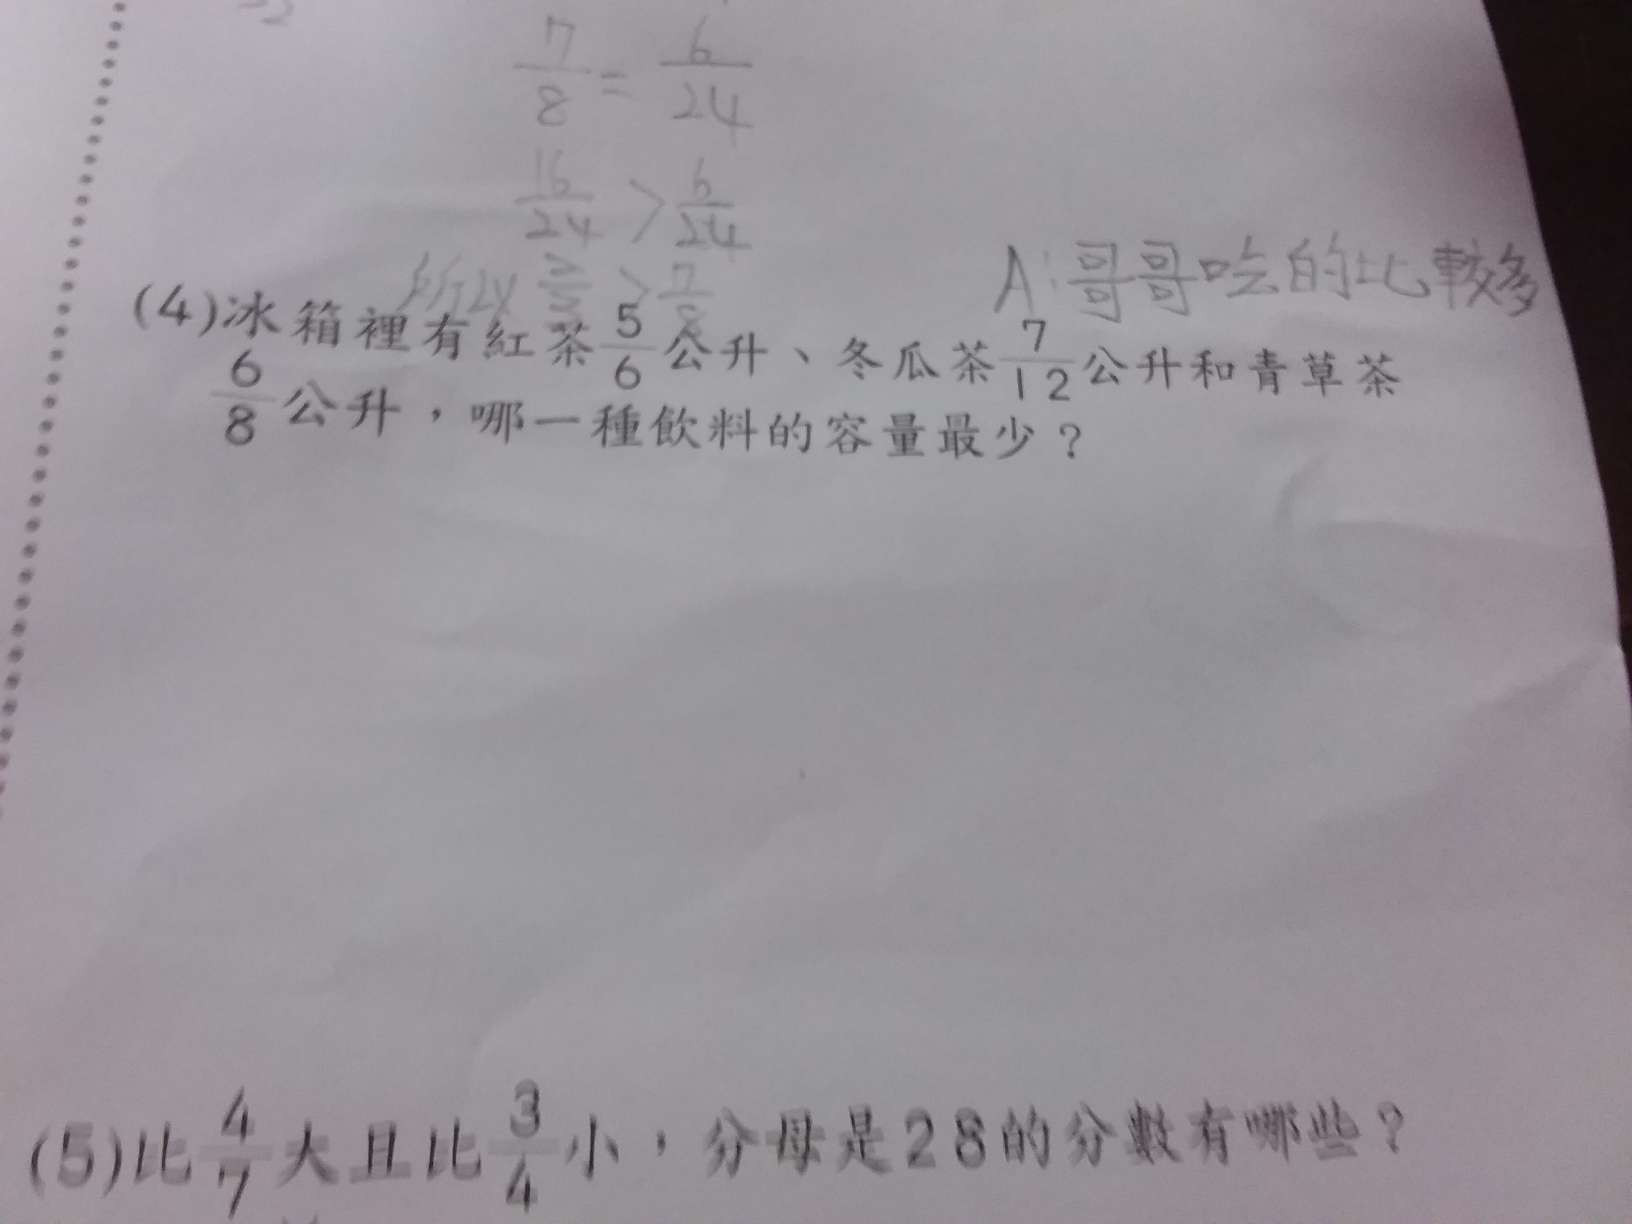 7/8 = 6/24
16/24 > 6/24
所以 > 7/8
A:哥哥吃的比較多
(4)冰箱裡有紅茶5/6公升、冬瓜茶7/12公升和青草茶
6/8公升,哪一種飲料的容量最少?
(5)比4/7大且比3/4小,分母是28的分數有哪些?